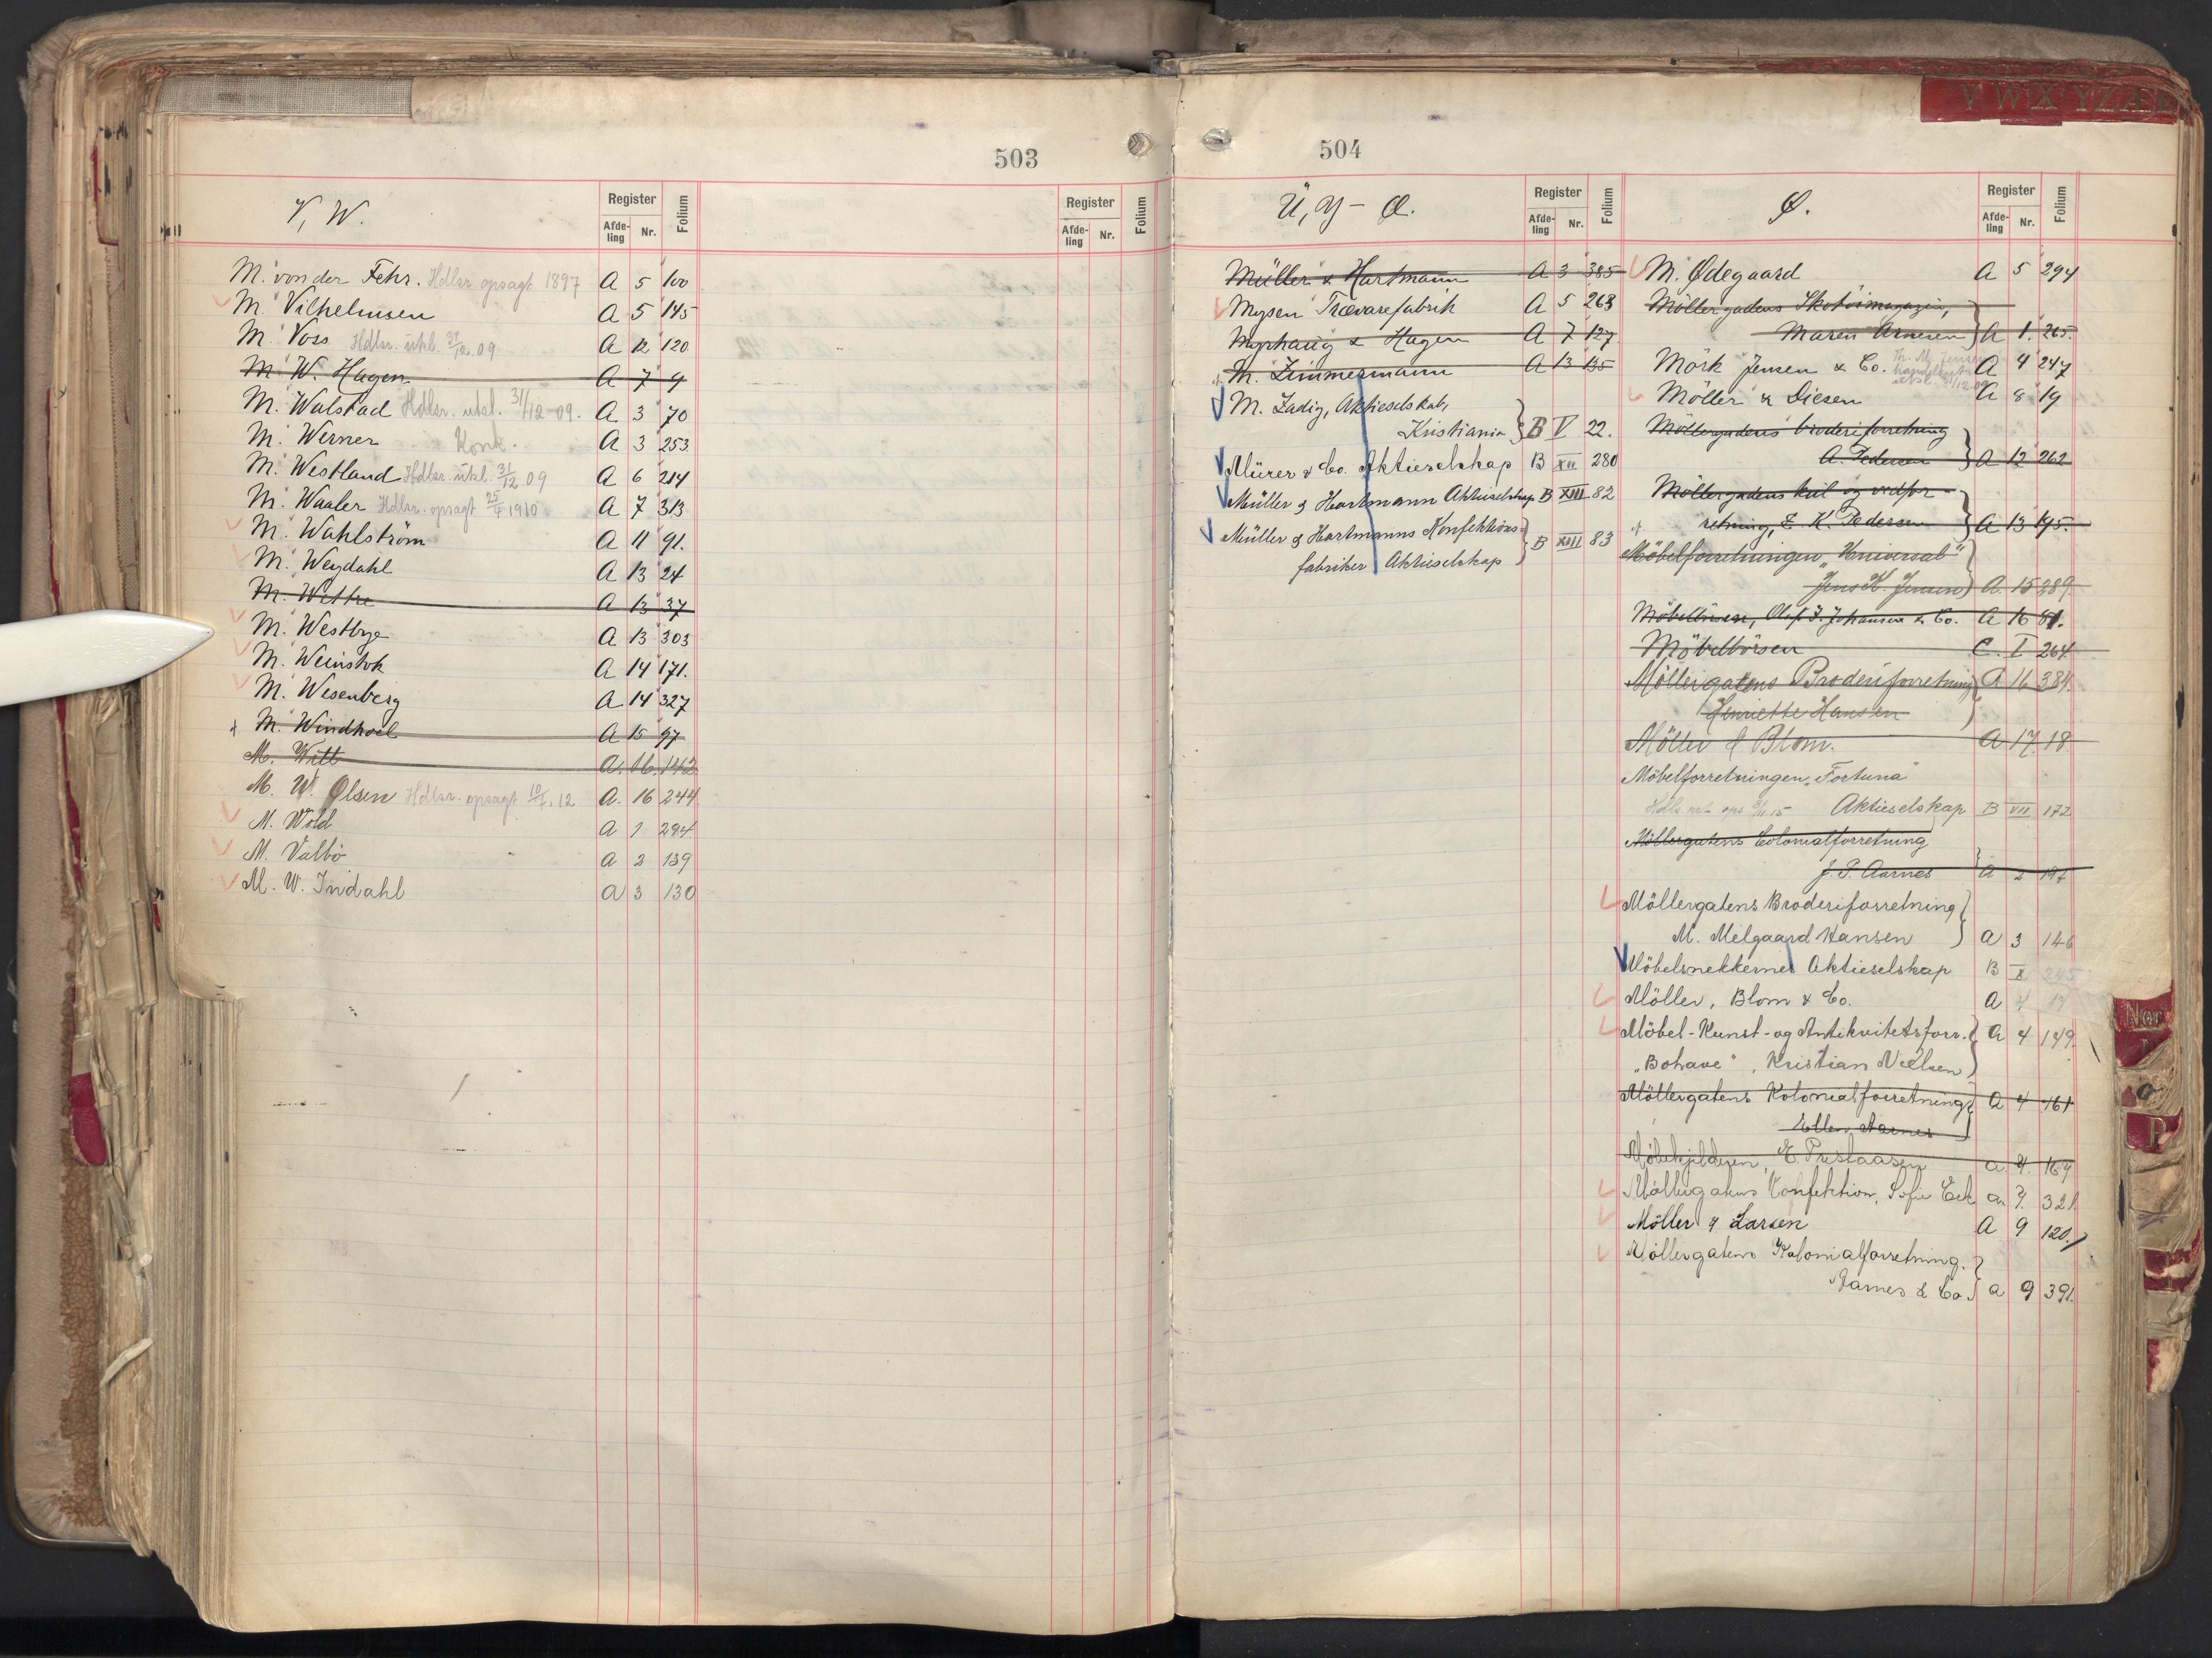 503
V, W.
Register
Afde-
ling
Nr.
Folium
Register
Afde-
ling
Nr.
Folium
M. von der Fehr. Hdlsr. opsagt 1897 A 5 100
M. Vilhelmsen A 5 145
M. Voss Hdlsr. utsl. 31/12.09 A 12 120
M. W. Hagen A 7 9
M. Walstad Hdlsr. utsl. 31/12-09. A 3 70
M. Werner Konk. A 3 253
M. Westland Hdlsr. utsl. 31/12 09 A 6 214
M. Waaler Hdlsr. opsagt 25/7 1910 A 7 313
M. Wahlström A 11 91.
M. Weydahl A 13 24
M. Wettre A 13 37
M. Westbye A 13 303
M. Weinstok A 14 171.
M. Wesenberg A 14 327
M. Windhoel A 15 97
M. Witt A. 16. 142
M. W. Olsen Hdlsr. opsagt 10/7.12 A. 16 244
M. Wold A 1 294
M. Valbö A 2 139
M. W. Indahl A 3 130
504
V W X Y Z Æ
Ü, Y - Æ.
Register
Afde-
ling
Nr.
Folium
Müller & Hartmann A 3 385
Mysen Trævarefabrik A 5 263
Myrhaug & Hagen A 7 127
M. Zimmermann A 13 135
M. Zadig, Aktieselskab,
Kristiania B V 22.
Mürer & Co. Aktieselskap B XII 280
Müller & Hartmann Aktieselskap B XIII 82
Müller & Hartmanns Konfektions-
fabriker Aktieselskap B XIII 83
Ø.
Register
Afde-
ling
Nr.
Folium
M. Ødegaard A 5 294
Möllergadens Skotöimagazin,
Maren Arnesen A 1. 265.
Mörk Jensen & Co. A 4 247
Möller & Diesen A 8 19
Möllergadens broderiforretning
A. Pedersen A 12 262
Möllergadens kul og vedfor-
retning, E. K. Pedersen A 13 195.
Möbelforretningen "Universal"
Jens K. Jensen A. 15 289
Möbelbörsen, Olaf J. Johansen & Co. A 16 81.
Möbelbörsen C. I 264
Möllergatens Broderiforretning A 16 384
Henriette Hansen
Möller & Blom. A 17 18
Möbelforretningen "Fortuna"
Aktieselskap B VII 172
Möllergatens Colonialforretning
J. P. Aarnes A 2 197
Möllergatens Broderiforretning
M. Melgaard Hansen A 3 146
Möbelsnekkernes Aktieselskap B X 245
Möller, Blom & Co. A 4 17
Möbel-Kunst-og Antikvitetsforr. A 4 149.
"Bohave", Kristian Nielsen
Möllergatens Kolonialforretning A 4 161
Ellen Aarnes
E. Prestaasen A 7. 169
Möllergatens Konfektion, Sofie Eek A 7. 321
Möller & Larsen A 9 120.
Möllergatens Kolonialforretning.
Aarnes & Co. A 9 391.
Nor
O
P